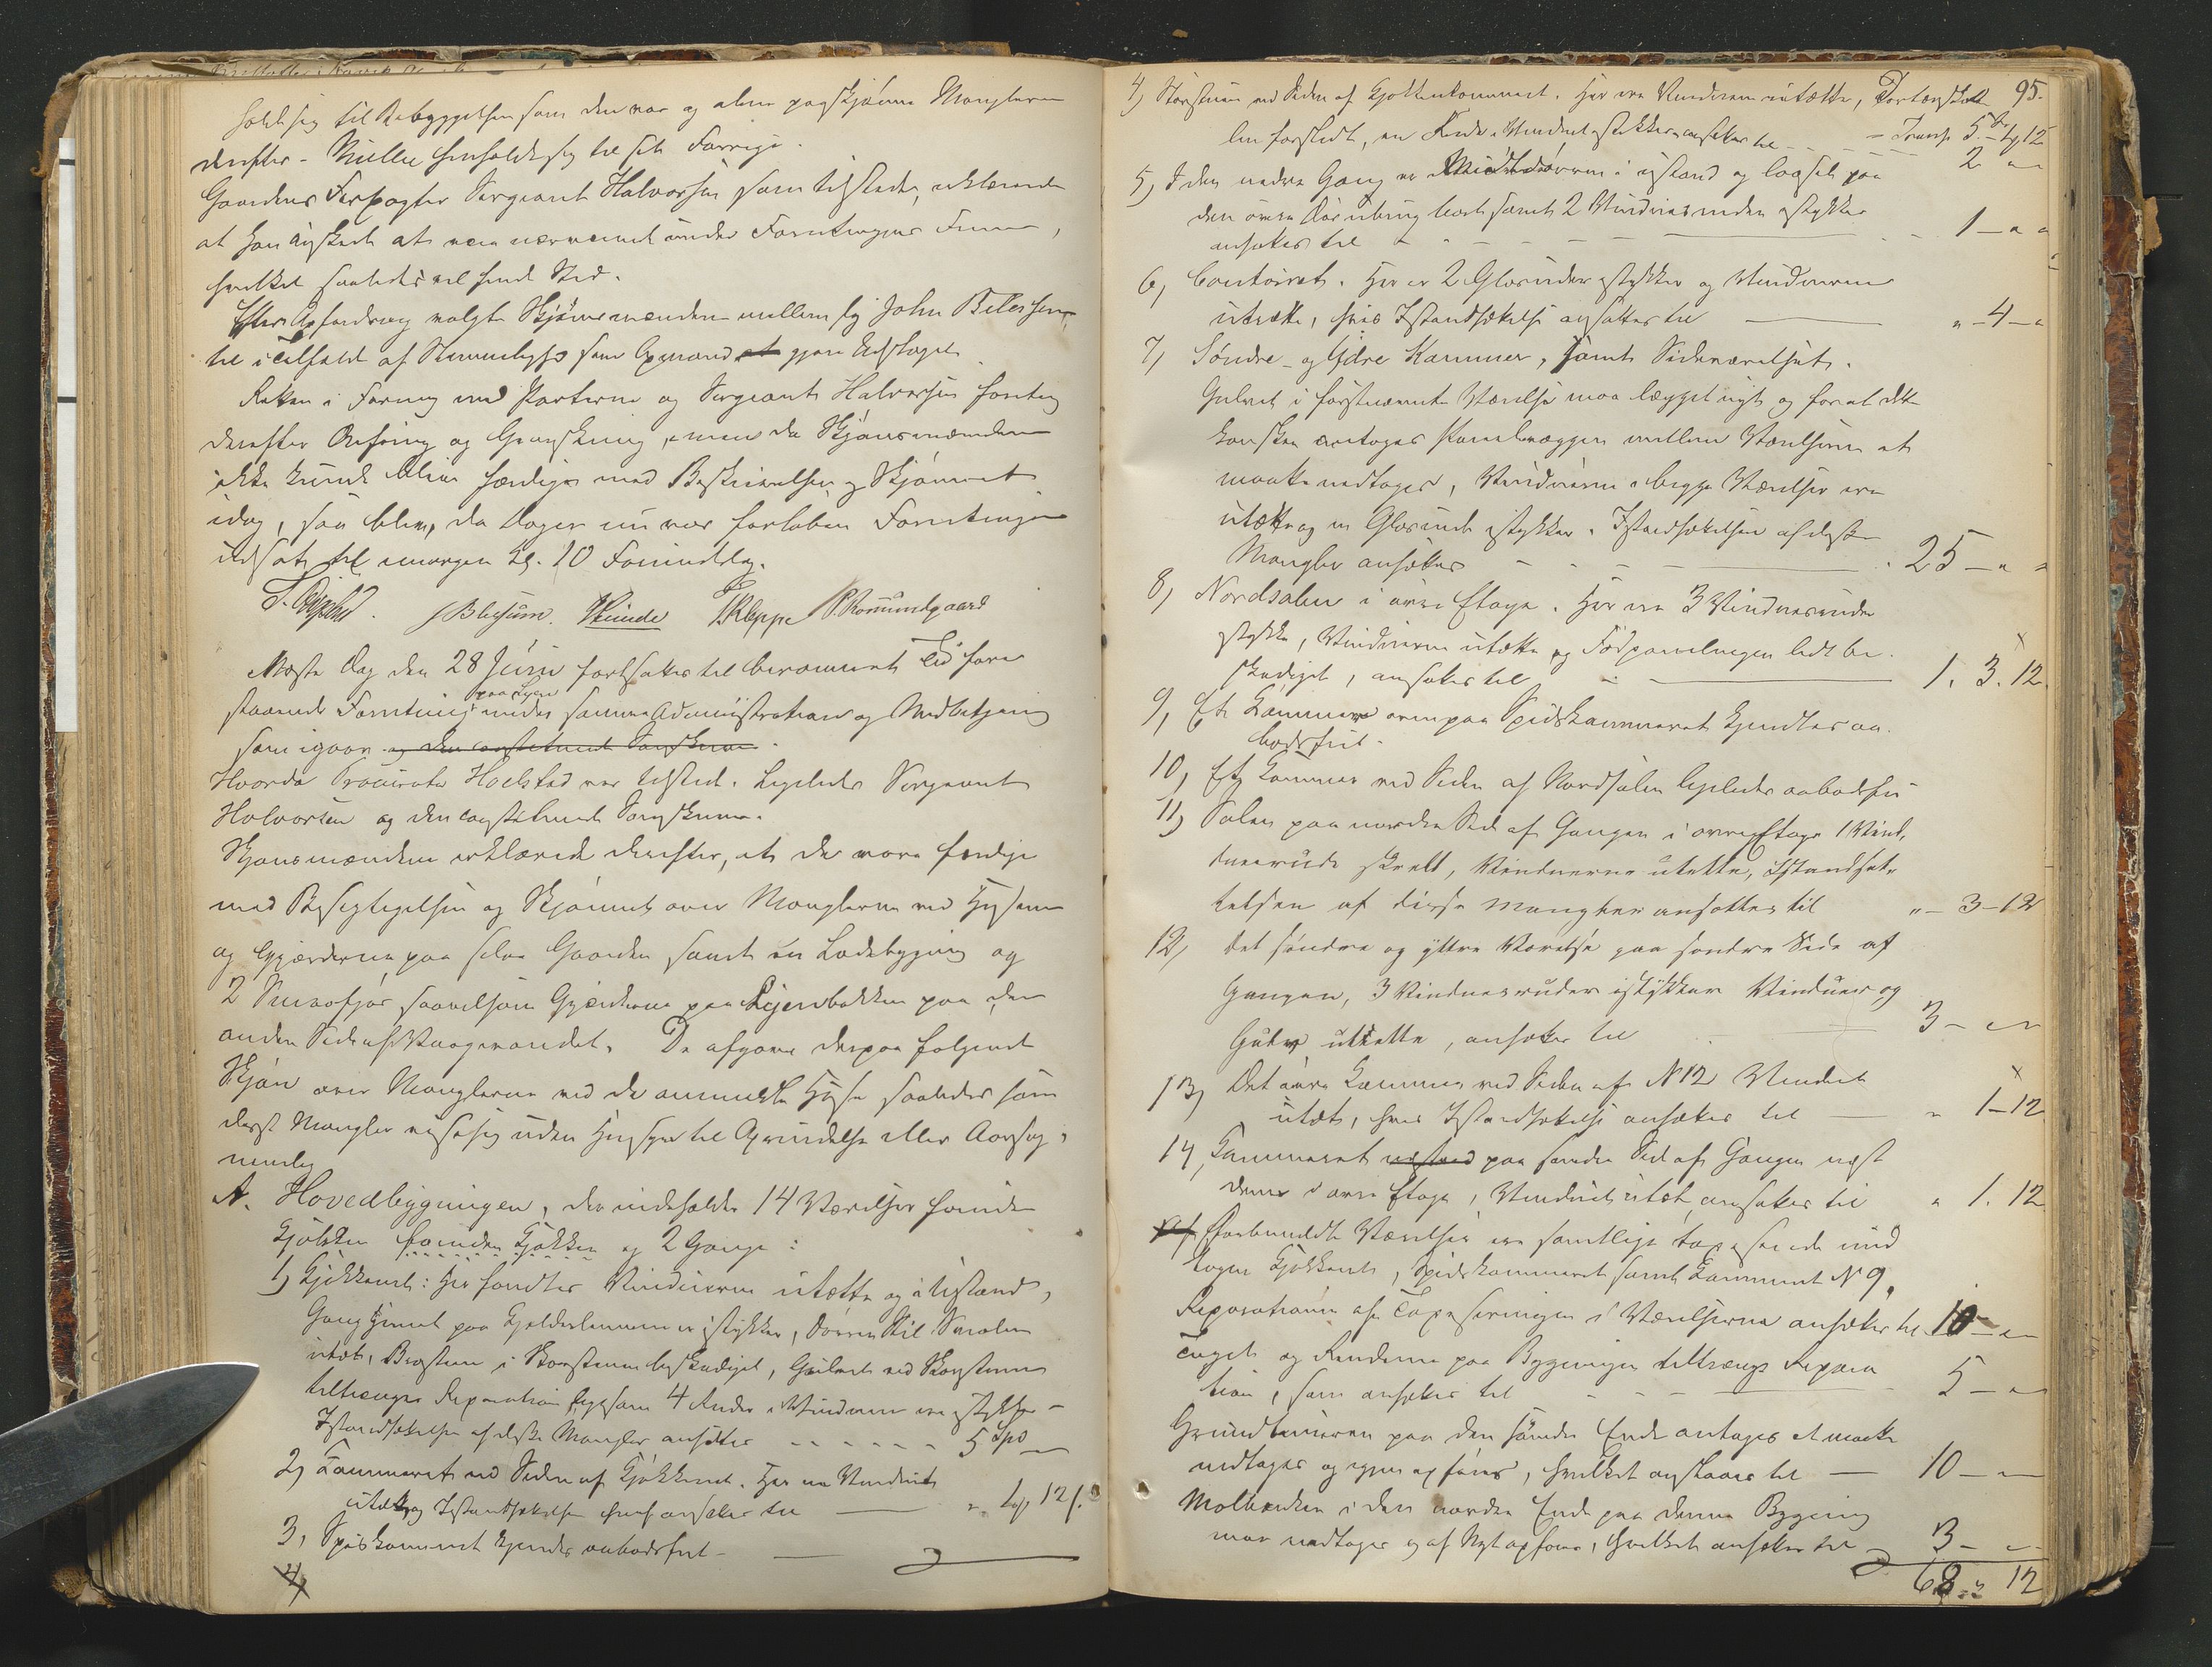 holdt sig til Bebyggelsen som den var og alene paaskjønne Manglerne
derefter. Müller henholdt sig til sit Forrige.
Gaardens Forpagter Sergeant Halvorsen som tilstede, erklærede
at han ønskede at være nærværende under Forretningens Fremme,
hvilket saaledes vil finde Sted.
Efter Opfordring valgte Skjønsmændene mellem sig John
til i Tilfælde af Stemmelighed som Opmand at gjøre Udslaget.
Retten i Forening med Parterne og Sergeant Halvorsen foretog
derefter Befaring og Granskning, men da Skjønsmændene
ikke kunde blive færdige med Beskrivelsen og Skjønnet
idag, saa blev, da Dagen nu var forløben Forretningen
udsat til imorgen Kl. 10 Formiddag.
J Blessum. Kleppe P. Romundgaard
Næste Dag den 28 Juni fortsattes til berammet Tid fore-
staaende Forretning paa Lyen under samme Administration og Medbetjening
som igaar og den constituerede Sorenskriver.
Hvorda Procurator Hoelstad var tilstede. Ligeledes Sergeant
Halvorsen og den constituerede Sorenskriver.
Skjønsmændene erklærede derefter, at de vare færdige
med Besigtigelsen og Skjønnet over Manglerne ved Husene
og Gjærderne paa selve Gaarden samt en Ladebygning og
2 saavelsom Gjærderne paa paa den
anden Side af Vaagevandet. De afgave derpaa følgende
Skjøn over Manglerne ved de anmeldte Huse saaledes som
disse Mangler vise sig uden Hensyn til Oprindelse eller Aarsag,
nemlig
A. Hovedbygningen, der indeholder 14 Værelser foruden
Kjøkken foruden Kjøkken og 2 Gange:
1, Kjøkkenet: Her fandtes Vinduerne utætte og i Ustand,
Gang paa Kjelderlemmen er istykker, Døren til Svalen
utæt, Brosten i Skorstenen beskadiget, Gulvet ved Skorstenen
tiltrænger Reparation, ligesom 4 Ruder i Vinduerne ere istykker -
Istandsættelsen af disse Mangler ansættes - - - - - - 5 Spd
2, Kammeret ved Siden af Kjøkkenet. Her er Vinduet
utæt og Istandsættelsen heraf ansættes til „ 1 ß 12 s.
3, Spiskammeret kjendes aabodsfrit -
4,
95.
4, Storstuen ved Siden af Kjøkkenkammeret. Her ere Vinduerne utætte, Dørtærske-
len forslidt, en Rude i Vinduet istykker, ansættes til - - - Transp. 5 - 1 ß 12
2 „ „
5, I den nedre Gang er Midtdøren i Ustand og Laaset paa
den øvre Dør ubrugbart samt 2 Vinduesruder istykker
ansættes til - - - - - - 1 - „ „
6, Contoiret. Her er 2 Glasruder istykker og Vinduerne
utætte, hvis Istandsættelse ansættes til „ - 4 - „
7, Søndre- og Ydre Kammer, samt Sideværelset.
Gulvet i førstnævnte Værelse maa lægges nyt og forat dette
kan ske antages Panelvæggen mellem Værelserne at
maatte nedtages, Vinduerne i begge Værelser ere
utætte og en Glasrude istykker. Istandsættelsen af disse
Mangler ansættes - - - - - 25 - „ „
8, Nordsalen i øvre Etage. Her ere 3 Vinduesruder
istykker, Vinduerne utætte og Fodpanelingen lidt be-
skadiget, ansættes til - 1. 3. 12.
9, Et Kammer ovenpaa Spiskammeret kjendtes aa-
bodsfrit.
10, Et Kammer ved Siden af Nordsalen ligeledes aabodsfri
11, Salen paa nordre Side af Gangen i øvre Etage 1 Vind-
duesrude skrelt, Vinduerne utætte, Istandsæt-
telsen af disse Mangler ansættes til „ - 3 - 12
12, Det søndre og yttre Værelse paa søndre Side af
Gangen, 3 Vinduesruder istykker Vinduer og
Gulv utætte, ansættes til 3 - „ „
13, Det øvre Kammer ved Siden af N 12 Vinduet
utæt, hvis Istandsættelse ansættes til „ 1 - 12
14, Kammeret paa søndre Side af Gangen næst
denne i øvre Etage, Vinduet utæt, ansættes til „ 1. 12
Værelser ere samtlige tapetserede und-
tagen Kjøkkenet, Spiskammeret samt Kammeret N 9,
Reparationen af Tapetseringen i Værelserne ansættes til 10 - „ „
Taget og Renderne paa Bygningen tiltrænges Repara-
tion, som ansættes til 5 - „ „
Grundmuren paa den søndre Ende antages at maatte
nedtages og igjen opføres, hvilket anslaaes til — 10 - „
i den nordre Ende paa denne Bygning
maa nedtages og af Nyt opføres, hvilket ansættes til 3 - „
68 - 2 12